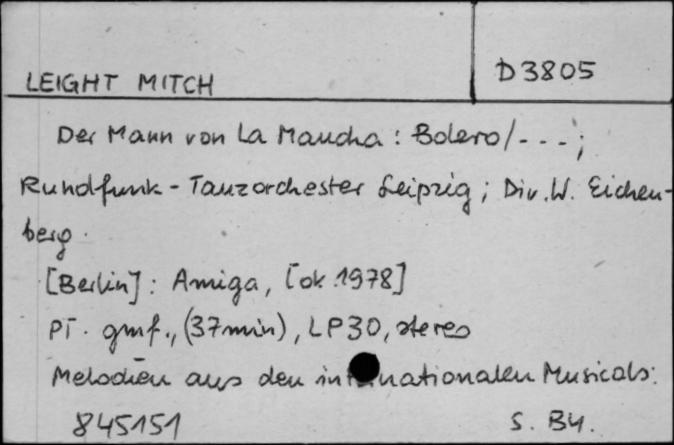 LEIGHT MITCH
D3805
Der Mann von La Mancha : Bolero/---;
Rundfunk-Tanzorchester Leipzig; Dir. W. Eichen-
berg.
[Berlin] : Amiga, [ok. 1978]
PŁ. gmf., (37min), LP30, stereo
Melodien aus den internationalen Musicals.
845151
S. B4.